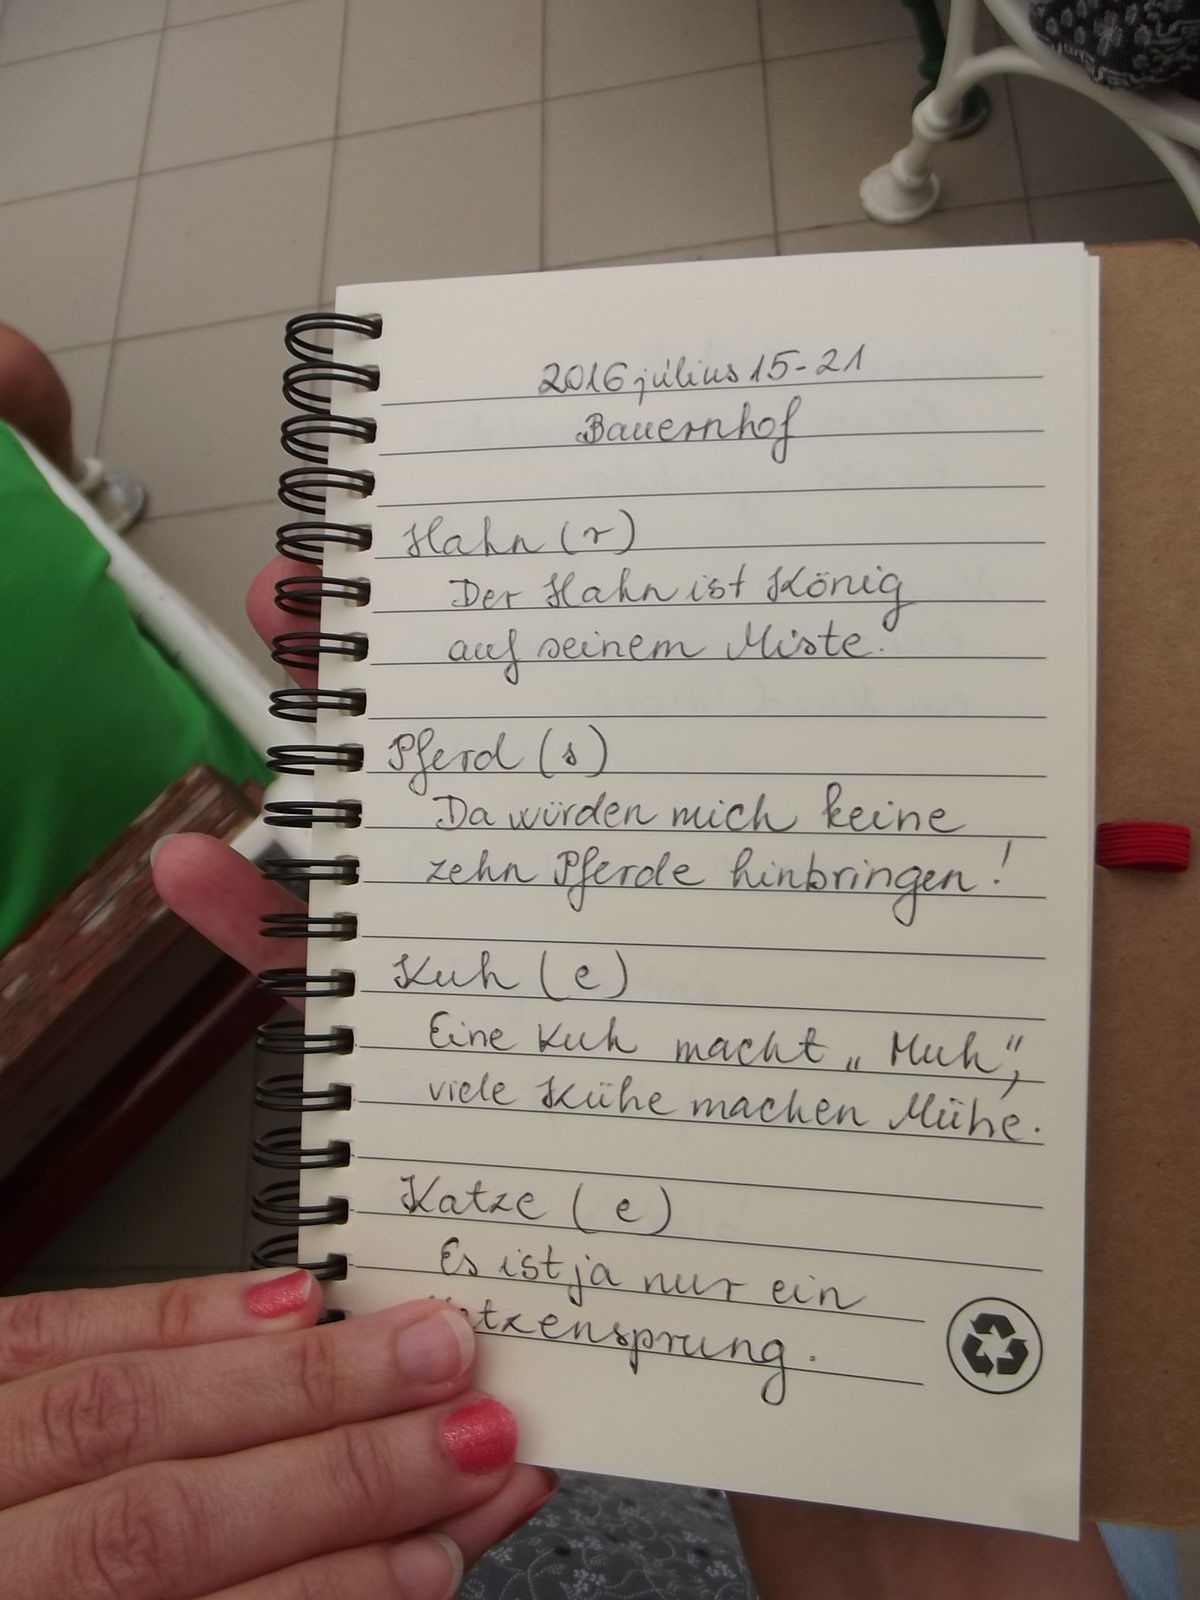 2016 július 15-21
Bauernhof
Hahn (r)
Der Hahn ist König
auf seinem Miste.
Pferd (s)
Da würden mich keine
zehn Pferde hinbringen!
Kuh (e)
Eine Kuh macht „Muh",
viele Kühe machen Mühe.
Katze (e)
Es ist ja nur ein
Katzensprung.